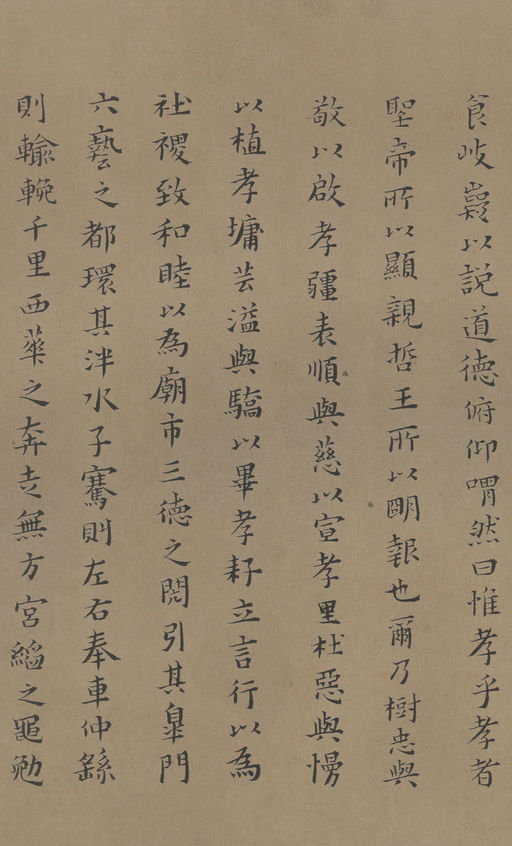 食岐嶷以說道德俯仰喟然曰惟孝乎孝者
聖帝所以顯親哲王所以明報也爾乃樹忠與
敬以啟孝疆表順與慈以宣孝里杜惡與慢
以植孝墉芸溢與驕以畢孝耔立言行以為
社禝致和睦以為廟市三德之閎引其皐門
六藝之都環其泮水子騫則左右奉車仲繇
則輸輓千里西華之奔走無方宮縚之黽勉